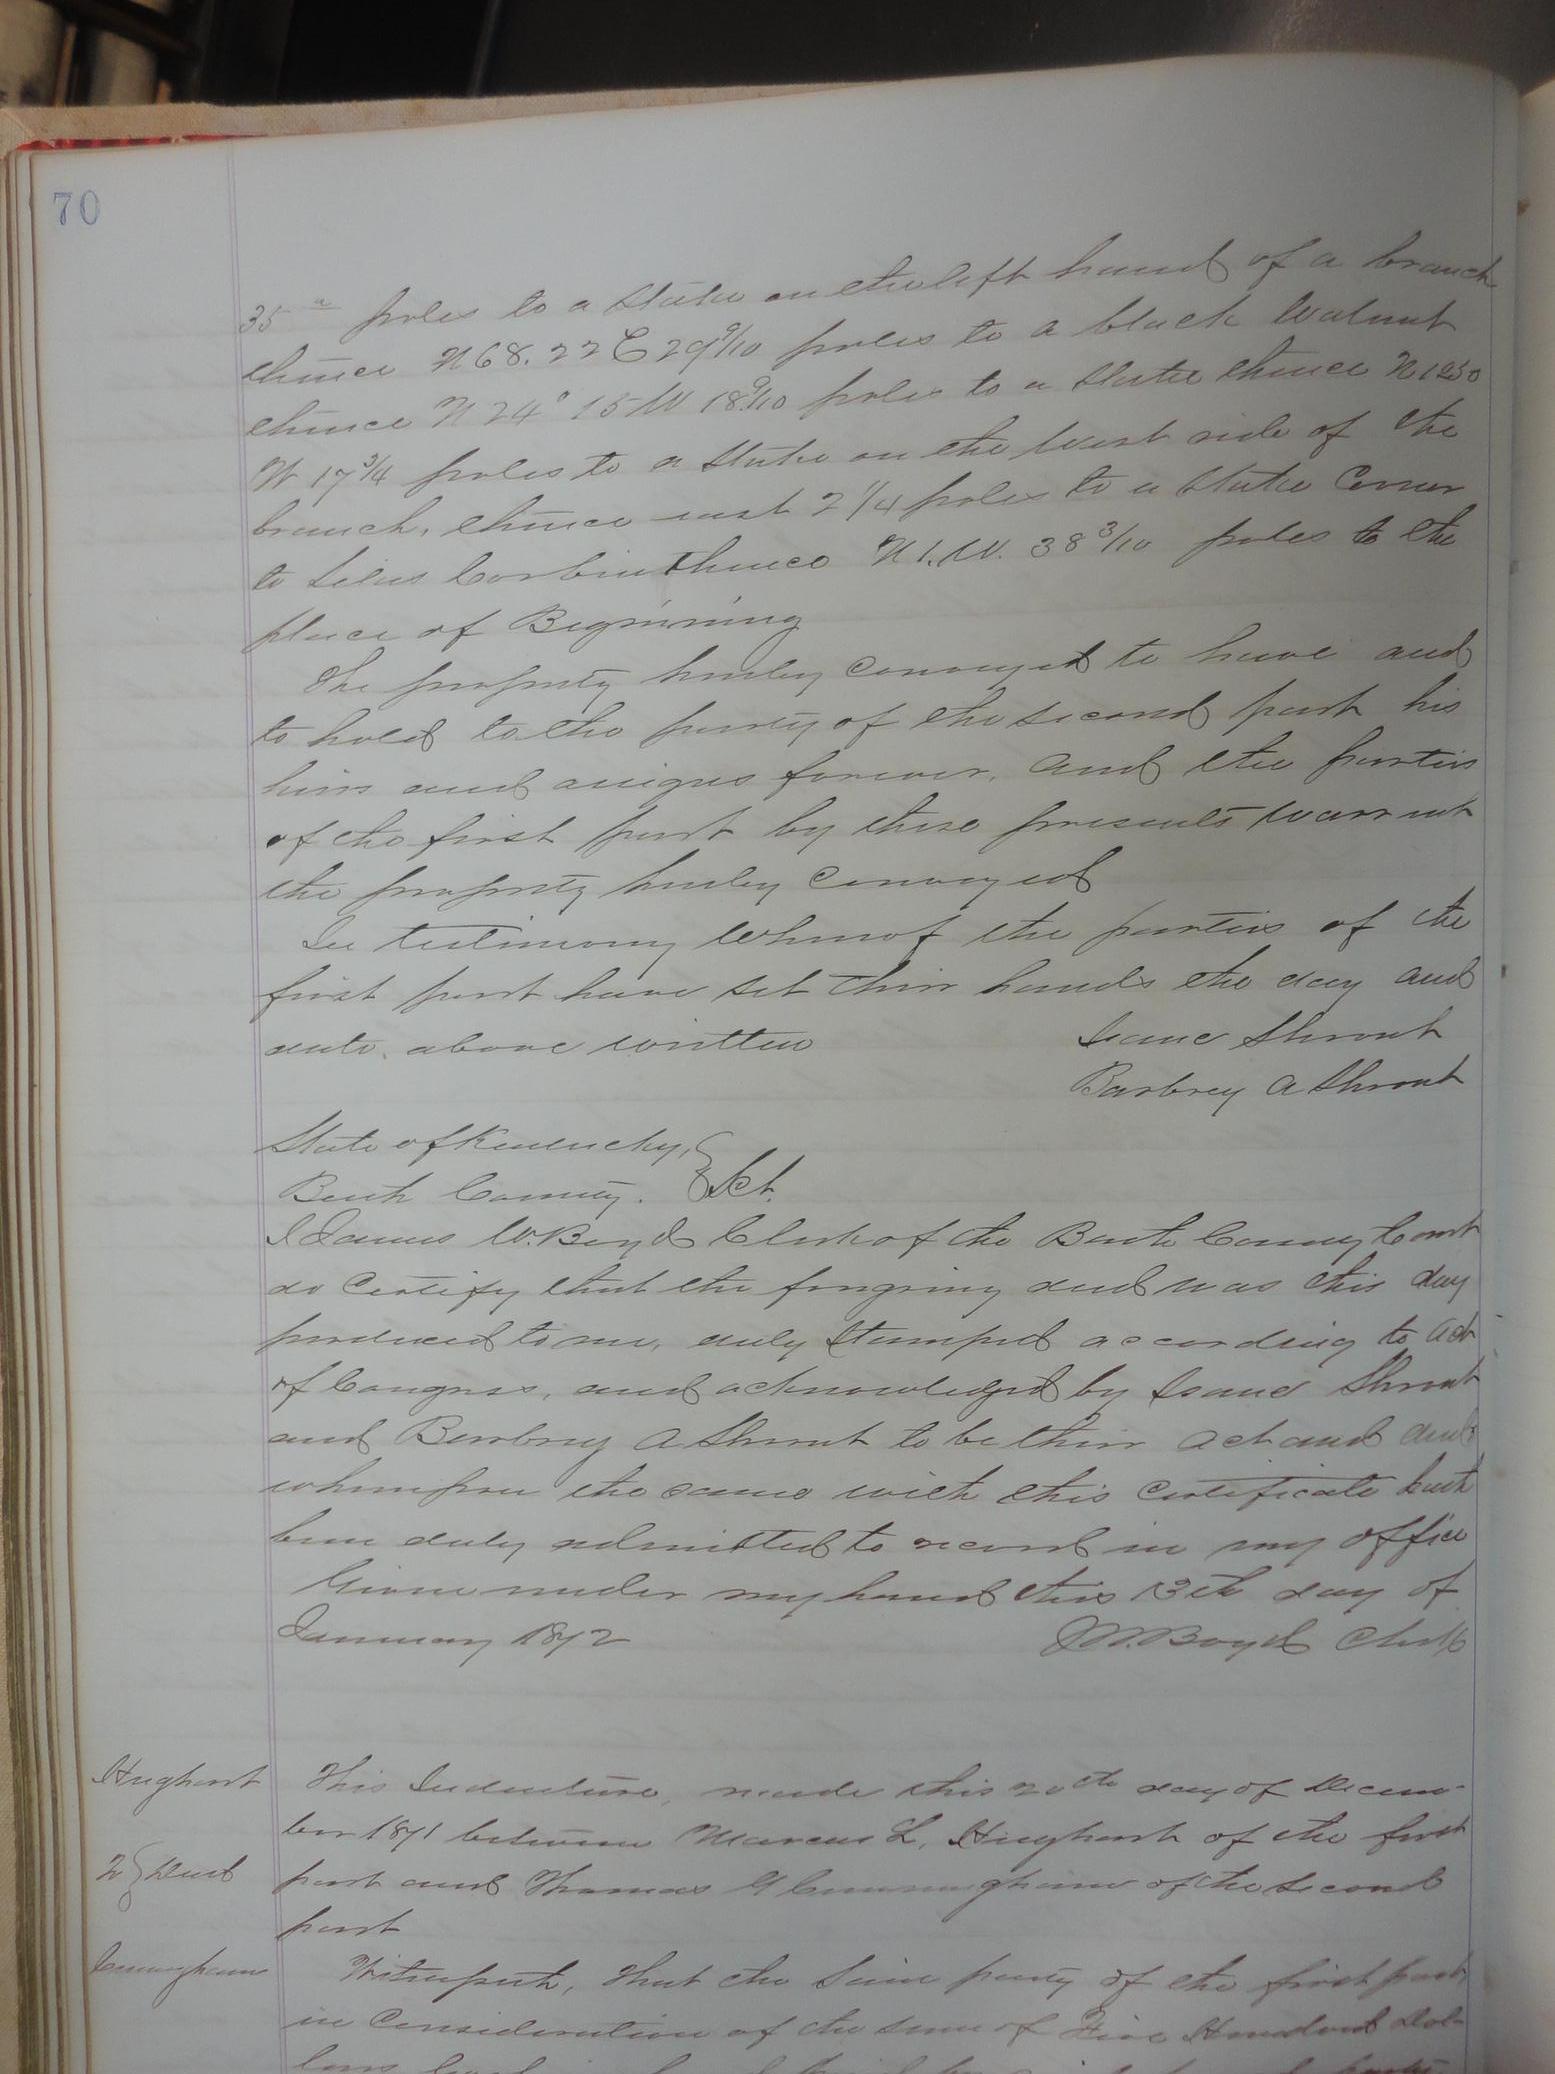 70
35 poles to a Stake on the left hand of a branch
thence N 68. 22 E 29 9/10 poles to a black Walnut
thence N 24° 15 W 18 9/10 poles to a Stake thence N
W 17 3/4 poles to a Stake on the West side of the
branch, thence east 2 1/4 poles to a Stake Corner
to Silas Corbin thence N 1. W. 38 3/10 poles to the
place of Beginning
The property hereby conveyed to have and
to hold to the party of the second part his
heirs and assigns forever, and the parties
of the first part by these presents warrant
the property hereby conveyed
In testimony whereof the parties of the
first part have set their hands the day and
date above written Isaac Shrout
Barbrey A Shrout
State of Kentucky,
Bath County. Sct.
I James W. Boyd Clerk of the Bath County Court
do Certify that the foregoing deed was this day
produced to me, duly Stamped according to act
of Congress, and acknowledged by Isaac Shrout
and Barbrey A Shrout to be their act and deed
whereupon the same with this Certificate hath
been duly admitted to record in my office
Given under my hand this 13th day of
January 1872 J. W. Boyd Clerk
Hughart This Indenture, made this 20th day of Decem-
ber 1871 between Marcus L. Hughart of the first
Deed part and Thomas Cunningham of the second
part
Cunningham Witnesseth, That the Said party of the first part
in Consideration of the sum of Five Hundred Dol-
lars